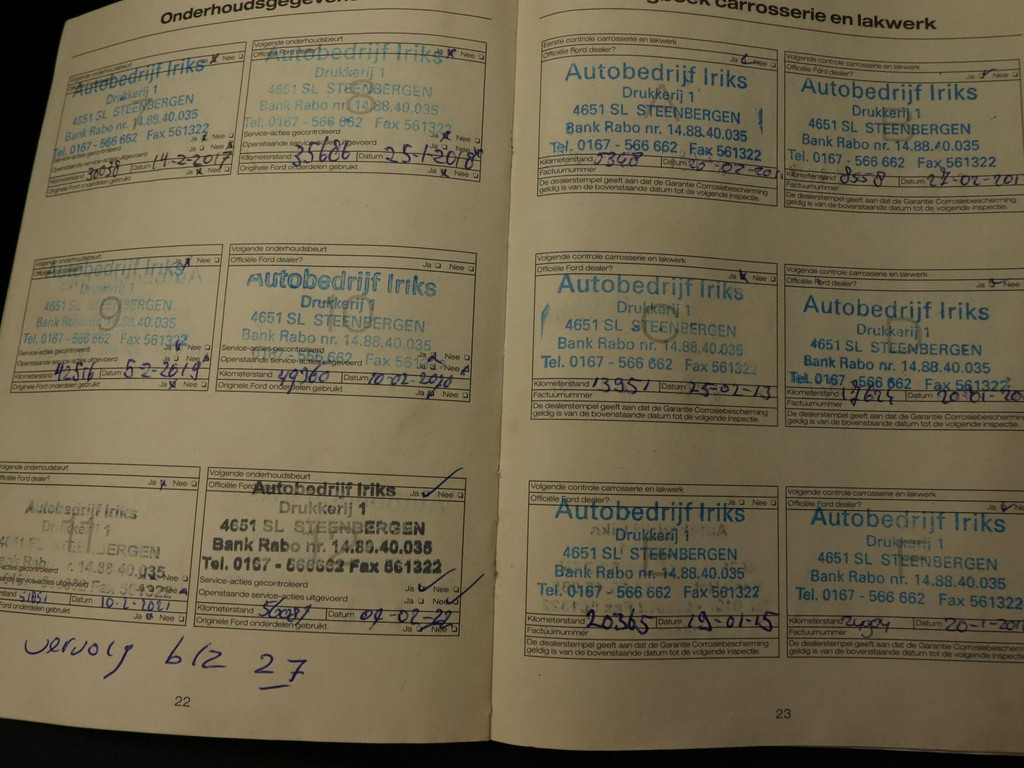 Onderhoudsgegevens
Autobedrijf Iriks
Drukkerij 1
4651 SL STEENBERGEN
Bank Rabo nr. 14.88.40.035
Tel. 0167 - 566 662 Fax 561322
Nee
Service-acties gecontroleerd
Openstaande service-acties uitgevoerd Ja Nee
Kilometerstand 30038 Datum 14-2-2017
Originele Ford onderdelen gebruikt Ja Nee
Volgende onderhoudsbeurt
Officiële Ford dealer? Ja Nee
Autobedrijf Iriks
Drukkerij 1
8
4651 SL STEENBERGEN
Bank Rabo nr. 14.88.40.035
Tel. 0167 - 566 662 Fax 561322
Service-acties gecontroleerd Ja Nee
Openstaande Ja Nee
Kilometerstand 35686 Datum 25-1-2018
Originele Ford onderdelen gebruikt Ja Nee
Volgende onderhoudsbeurt
Autobedrijf Iriks
Drukkerij 1
9
4651 SL STEENBERGEN
Bank Rabo nr. 14.88.40.035
Tel. 0167 - 566 662 Fax 561322
Service-acties gecontroleerd
Openstaande service-acties uitgevoerd Ja Nee
Kilometerstand 42516 Datum 5-2-2019
Originele Ford onderdelen gebruikt Ja Nee
Volgende onderhoudsbeurt
Officiële Ford dealer? Ja Nee
Autobedrijf Iriks
Drukkerij 1
10
4651 SL STEENBERGEN
Bank Rabo nr. 14.88.40.035
Service-acties gecontroleerd
0167 - 566 662 Fax
Openstaande service-acties uitgevoerd Ja Nee
Kilometerstand 49760 Datum 10-02-2020
Originele Ford onderdelen gebruikt Ja Nee
Volgende onderhoudsbeurt
Officiële Ford dealer? Ja Nee
Autobedrijf Iriks
Drukkerij 1
11
4651 SL STEENBERGEN
service-acties uitgevoerd Ja Nee
51851 Datum 10-2-2021
Ford onderdelen gebruikt Ja Nee
Volgende onderhoudsbeurt
Officiële Ford Ja Nee
Autobedrijf Iriks
Drukkerij 1
12
4651 SL STEENBERGEN
Bank Rabo nr. 14.88.40.035
Tel. 0167 - 566662 Fax 561322
Service-acties gecontroleerd Ja Nee
Openstaande service-acties uitgevoerd Ja Nee
Kilometerstand Datum 09-02-22
Originele Ford onderdelen gebruikt Ja Nee
vervolg blz 27
22
carrosserie en lakwerk
Eerste controle carrosserie en lakwerk
Officiële Ford dealer? Ja Nee
Autobedrijf Iriks
Drukkerij 1
4651 SL STEENBERGEN
Bank Rabo nr. 14.88.40.035
Tel. 0167 - 566 662 Fax 561322
Kilometerstand 5348 Datum
Factuurnummer
De dealerstempel geeft aan dat de Garantie Corrosiebescherming
geldig is van de bovenstaande datum tot de volgende inspectie.
Volgende controle carrosserie en lakwerk
Officiële Ford dealer? Ja Nee
Autobedrijf Iriks
Drukkerij 1
4651 SL STEENBERGEN
Bank Rabo nr. 14.88.40.035
Tel. 0167 - 566 662 Fax 561322
Kilometerstand 8558 Datum 27-02-201
Factuurnummer
De dealerstempel geeft aan dat de Garantie Corrosiebescherming
geldig is van de bovenstaande datum tot de volgende inspectie.
Volgende controle carrosserie en lakwerk
Officiële Ford dealer? Ja Nee
Autobedrijf Iriks
Drukkerij 1
4651 SL STEENBERGEN
Bank Rabo nr. 14.88.40.035
Tel. 0167 - 566 662 Fax 561322
Kilometerstand 13951 Datum 25-02-13
Factuurnummer
De dealerstempel geeft aan dat de Garantie Corrosiebescherming
geldig is van de bovenstaande datum tot de volgende inspectie.
Volgende controle carrosserie en lakwerk
Officiële Ford dealer? Ja Nee
Autobedrijf Iriks
Drukkerij 1
4651 SL STEENBERGEN
Bank Rabo nr. 14.88.40.035
Tel. 0167 - 566 662 Fax 561322
Kilometerstand 17624 Datum 20-01-20
Factuurnummer
De dealerstempel geeft aan dat de Garantie Corrosiebescherming
geldig is van de bovenstaande datum tot de volgende inspectie.
Volgende controle carrosserie en lakwerk
Officiële Ford dealer? Ja Nee
Autobedrijf Iriks
Drukkerij 1
4651 SL STEENBERGEN
Bank Rabo nr. 14.88.40.035
Tel. 0167 - 566 662 Fax 561322
Kilometerstand 20365 Datum 19-01-15
Factuurnummer
De dealerstempel geeft aan dat de Garantie Corrosiebescherming
geldig is van de bovenstaande datum tot de volgende inspectie.
Volgende controle carrosserie en lakwerk
Officiële Ford dealer? Ja Nee
Autobedrijf Iriks
Drukkerij 1
4651 SL STEENBERGEN
Bank Rabo nr. 14.88.40.035
Tel. 0167 - 566 662 Fax 561322
Kilometerstand Datum 20-1-201
Factuurnummer
De dealerstempel geeft aan dat de Garantie Corrosiebescherming
geldig is van de bovenstaande datum tot de volgende inspectie.
23